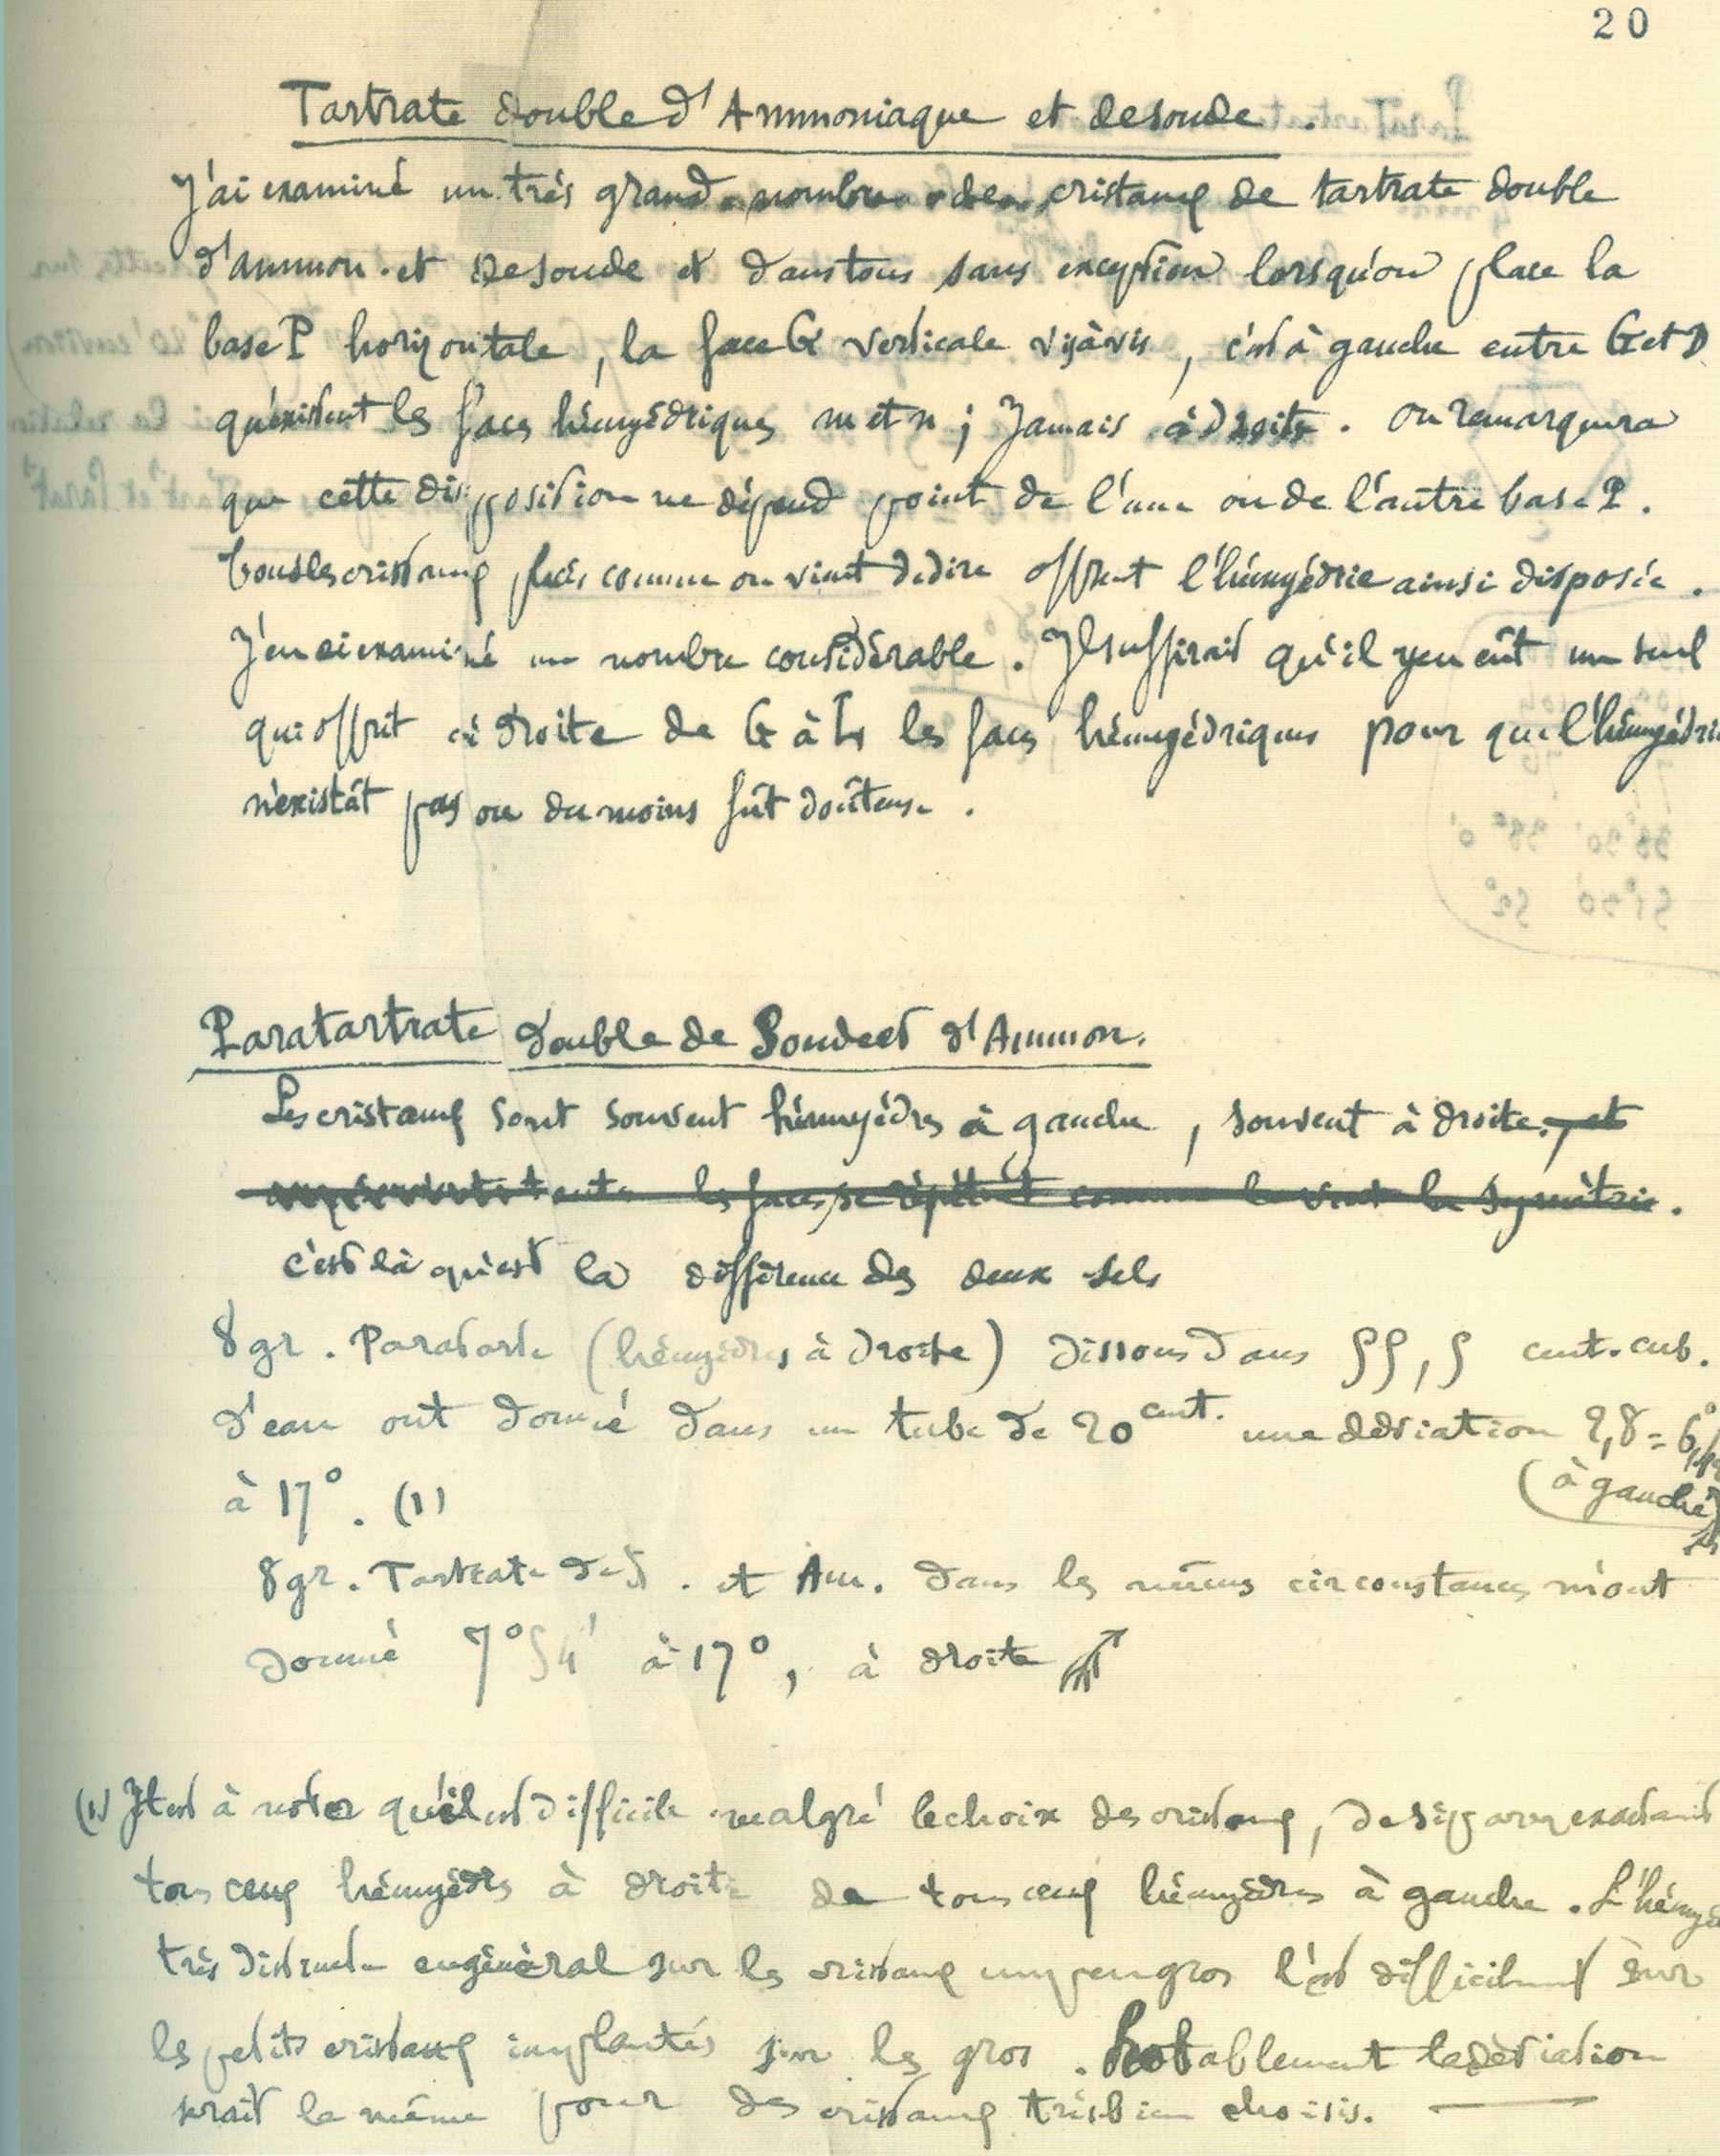 20
Tartrate double d'Ammoniaque et de soude.
J'ai examiné un très grand nombre de cristaux de tartrate double
d'ammon. et de soude et dans tous sans exception lorsqu'on place la
base P horizontale, la face G verticale vis à vis, c'est à gauche entre G et
qu'existent les faces hémyédriques m et n; jamais à droite. On remarquera
que cette disposition ne dépend point de l'une ou de l'autre base P.
Tous les cristaux placés comme on vient de dire offrent l'hémyédrie ainsi disposée.
J'en ai examiné un nombre considérable. Il suffirait qu'il y en eût un seul
qui offrit à droite de G à les faces hémyédriques pour que l'hémyédrie
n'existât pas ou du moins fût douteuse.
Paratartrate double de Soude et d'Ammon.
Les cristaux sont souvent hémyèdres à gauche, souvent à droite, et
les faces se répètent comme le veut la symétrie.
c'est là qu'est la différence des deux sels
8 gr. Paratarte (hémyèdres à droite) dissous dans 55,5 cent. cub.
d'eau ont donné dans un tube de 20 cent. une déviation 2,8 =
(à gauche)
à 17°. (1)
8 gr. Tartrate de S. et Am. dans les mêmes circonstances m'ont
donné 7° 54' à 17°, à droite
(1) Il est à noter qu'il est difficile malgré le choix des cristaux, de séparer exactement
tous ceux hémyèdres à droite de tous ceux hémyèdres à gauche. L'hémyé
très distincte en général sur les cristaux un peu gros l'est difficilement sur
les petits cristaux implantés sur les gros. Probablement la déviation
serait la même pour des cristaux très bien choisis.